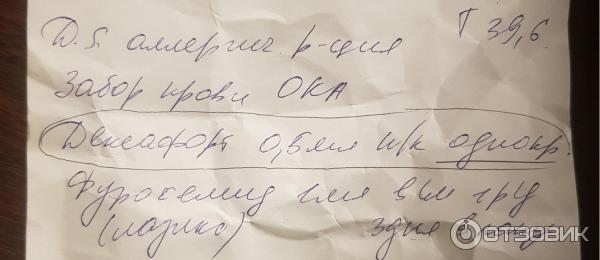 D.S. аллергич. р-ция Т 39,6
Забор крови ОКА
Дексафорт 0,5мл п/к однокр.
Фуросемид 1мл в/м
(лазикс) 3 дня
ОТЗОВИК